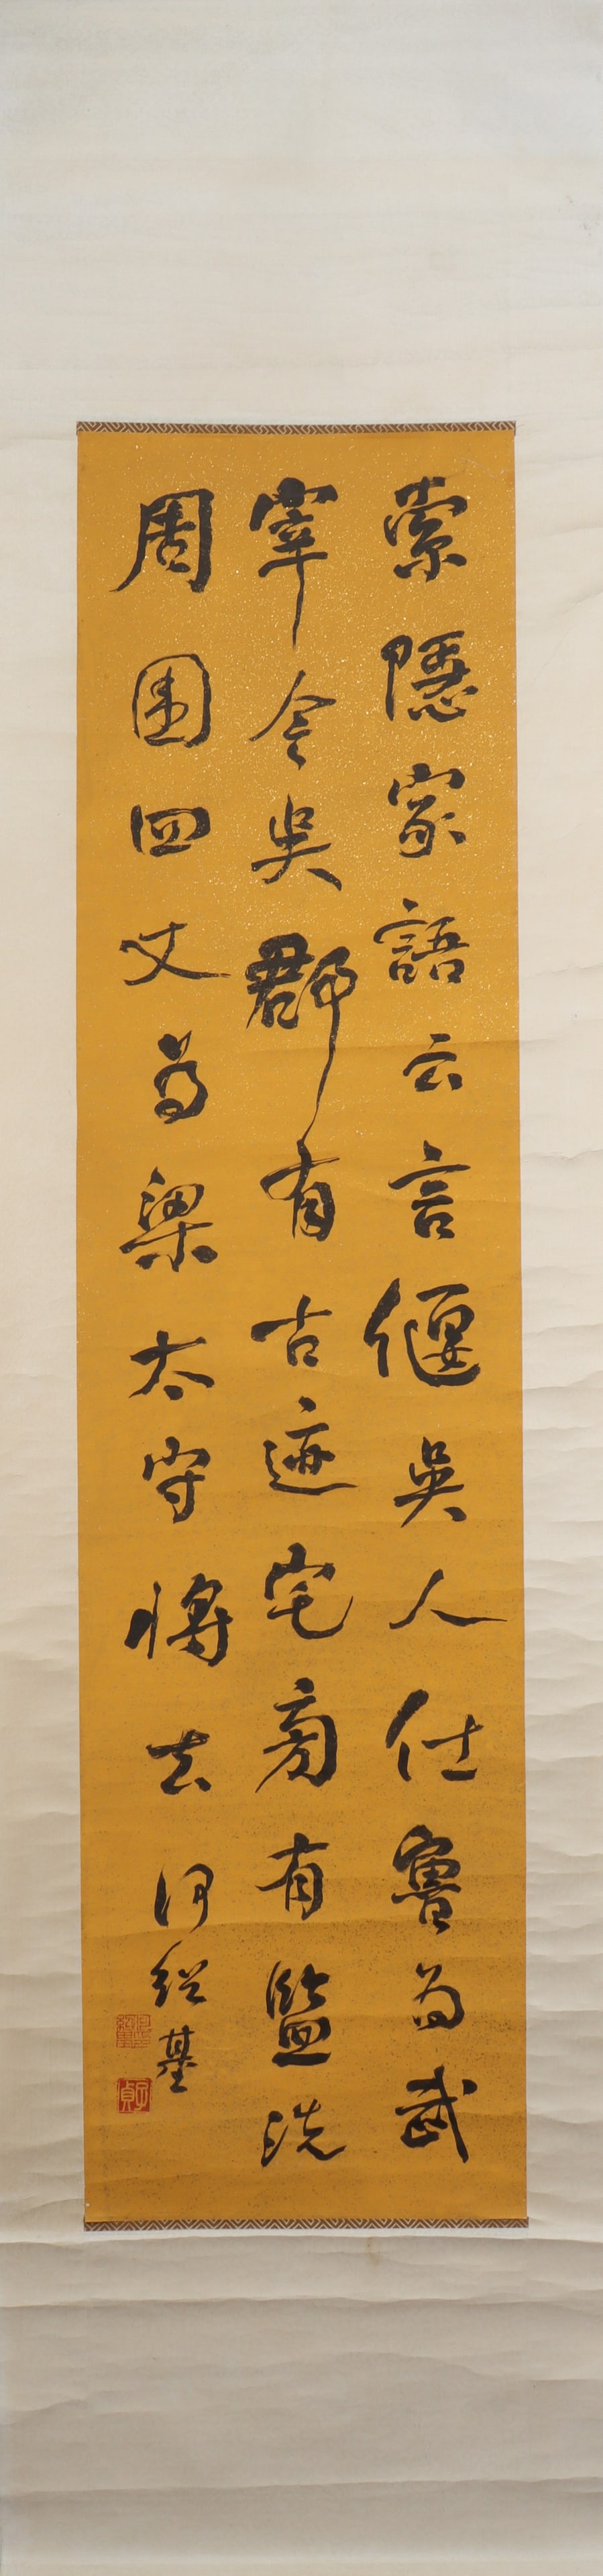 索隱家語云言偃吳人仕魯為武
宰今吳郡有古迹宅旁有盥洗
周圍四丈為梁太守將去
何紹基
子貞